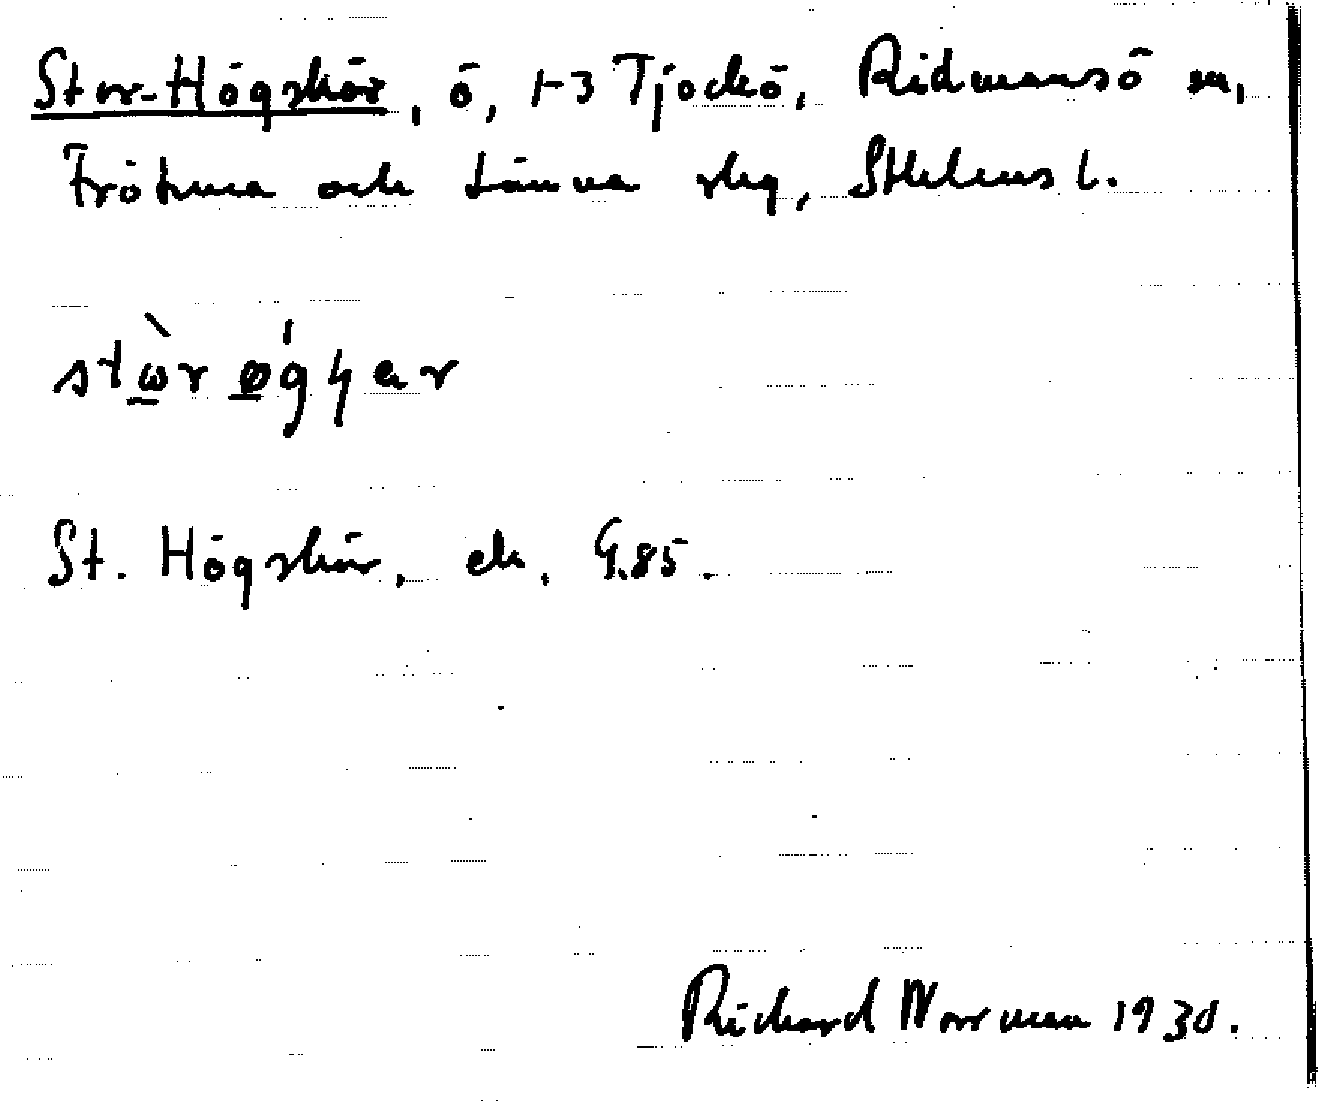 Stor-Högskär, ö, 1-3 Tjockö, Rådmansö sn,
Frötuna och Länna skg, Sthlms l.
stὼr øǵɧær
St. Högskär, ek. G.85.
Richard Norrman 1930.